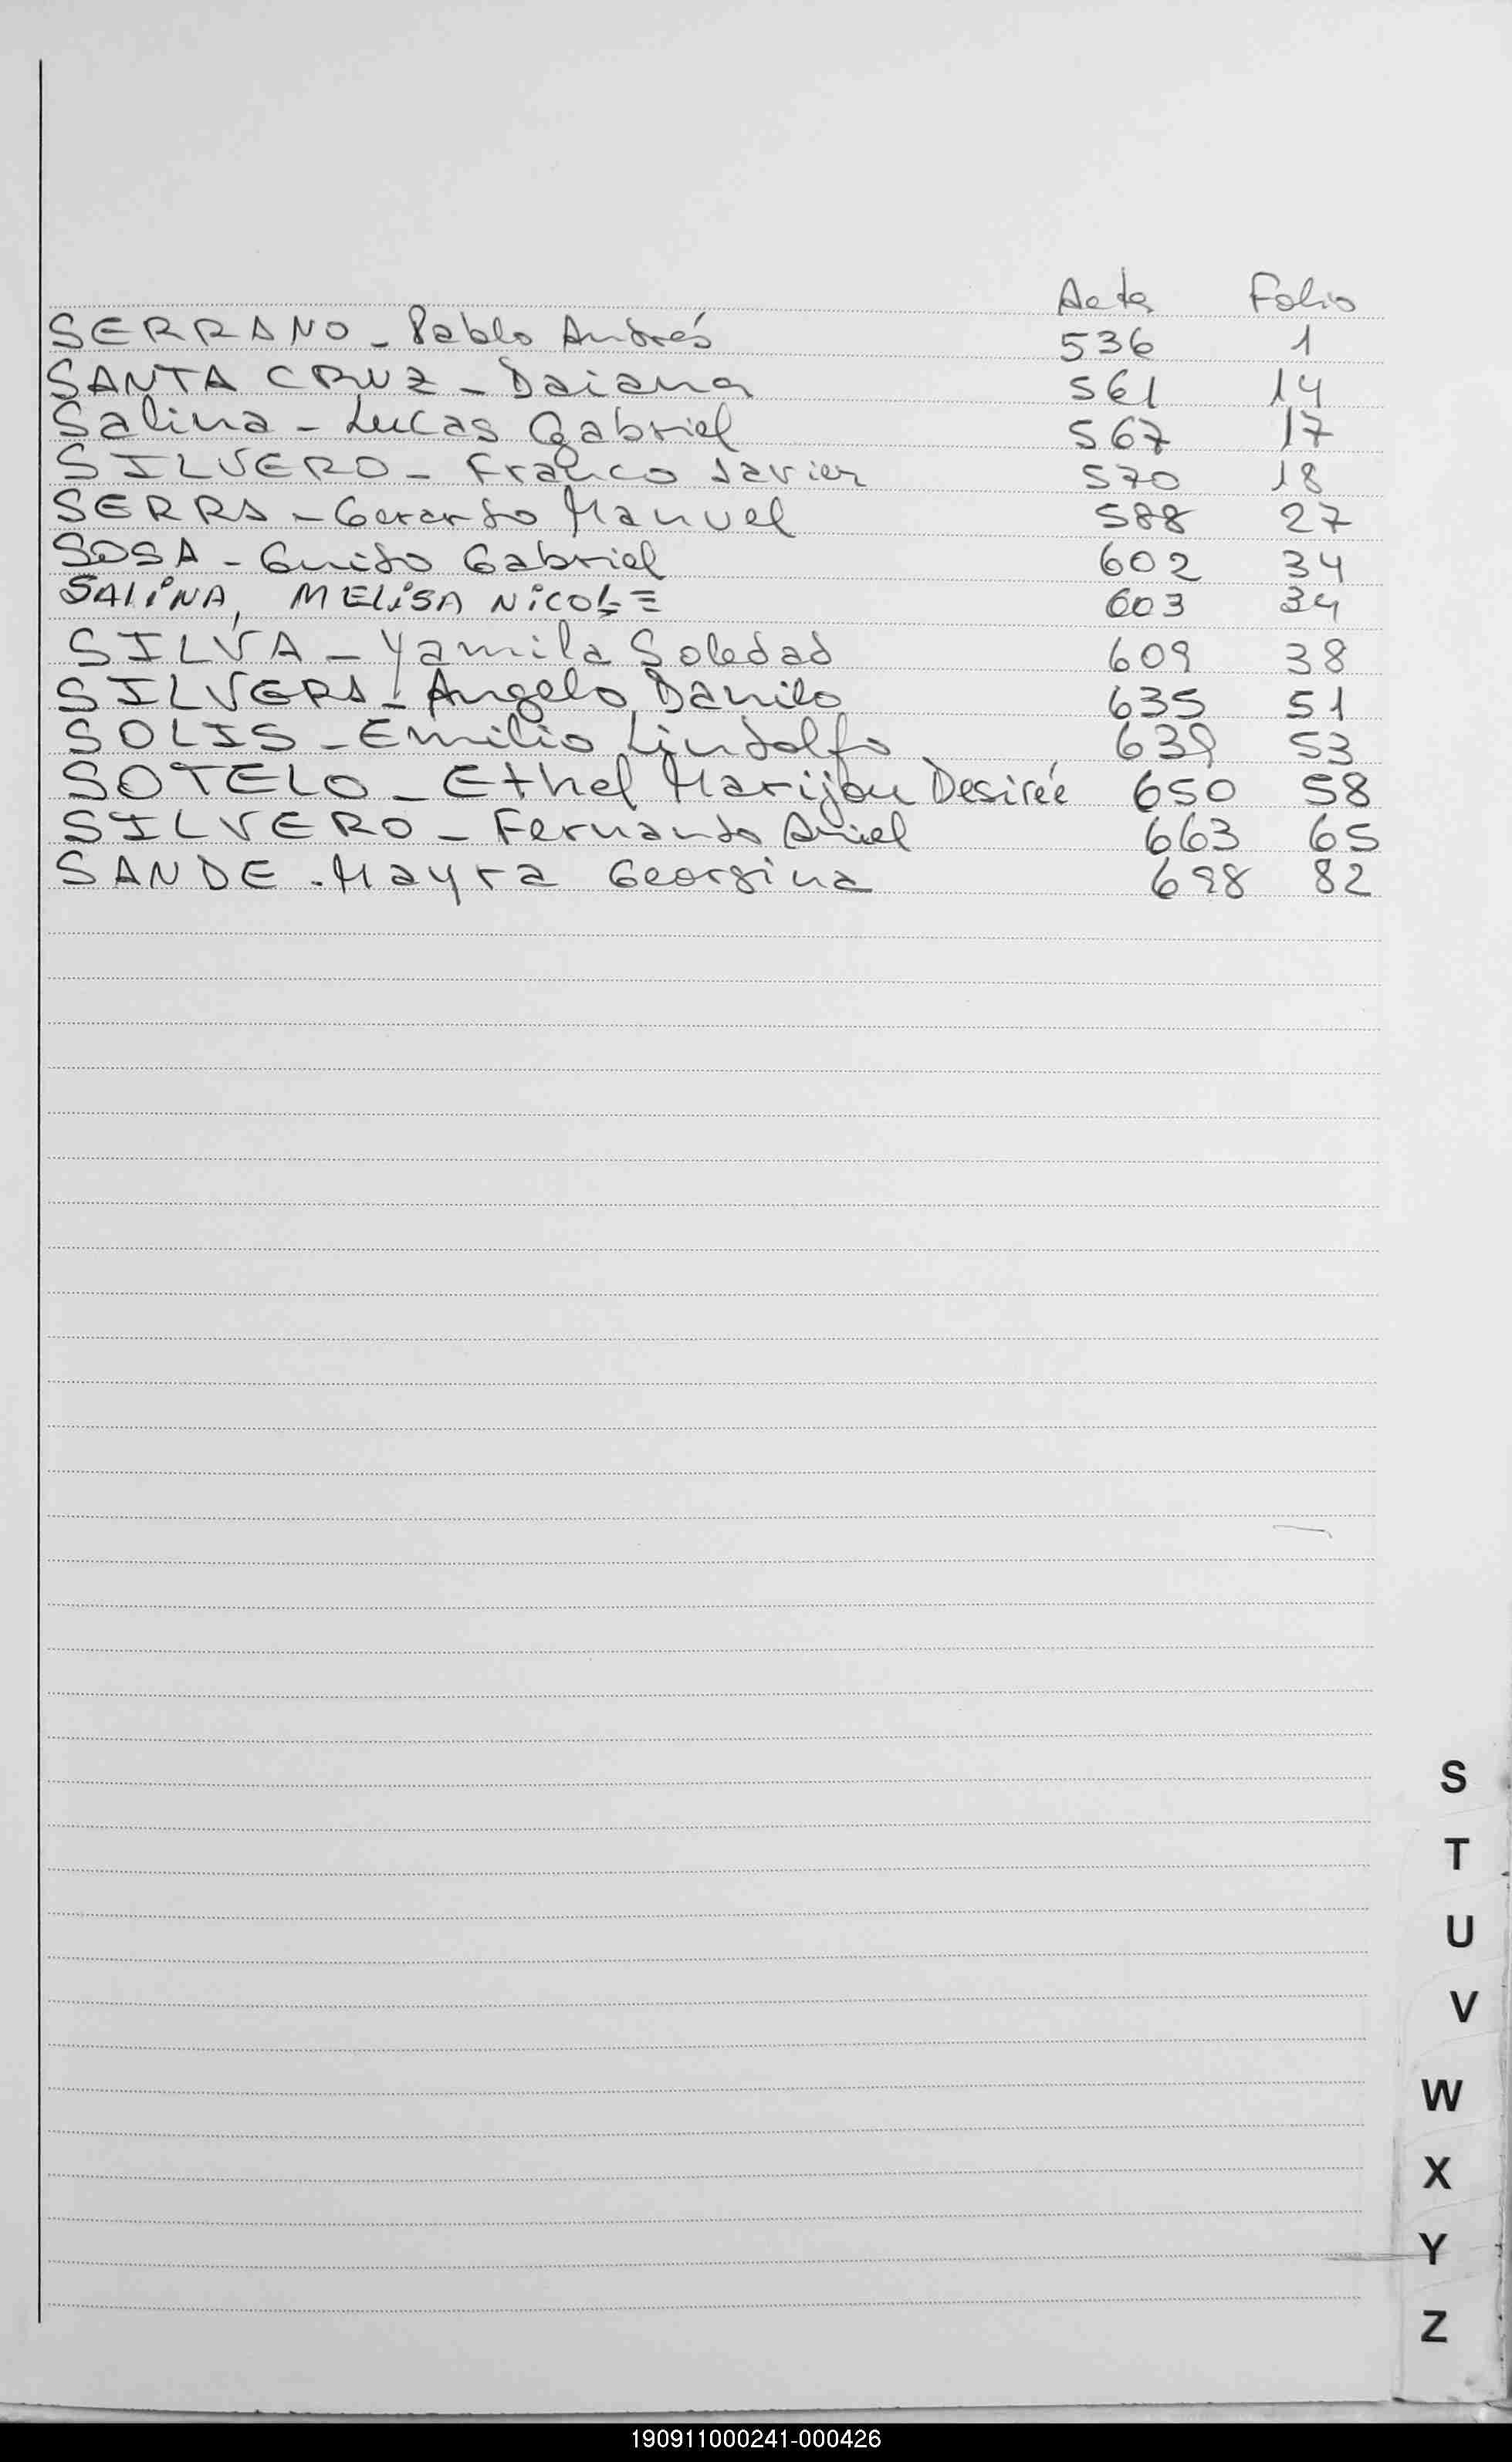 Acta Folio
SERRANO - Pablo Andrés 536 1
SANTA CRUZ - Daiana 561 14
Salina - Lucas Gabriel 567 17
SILVERO - Franco Javier 570 18
SERRA - Gerardo Manuel 588 27
SOSA - Guido Gabriel 602 34
SALINA, MELISA NICOLE 603 34
SILVA - Yamila Soledad 609 38
SILVERA - Angelo Danilo 635 51
SOLIS - Emilio Lindolfo 639 53
SOTELO - Ethel Marijou Desirée 650 58
SILVERO - Fernando Ariel 663 65
SANDE - Mayra Georgina 698 82
S
T
U
V
W
X
Y
Z
190911000241-000426